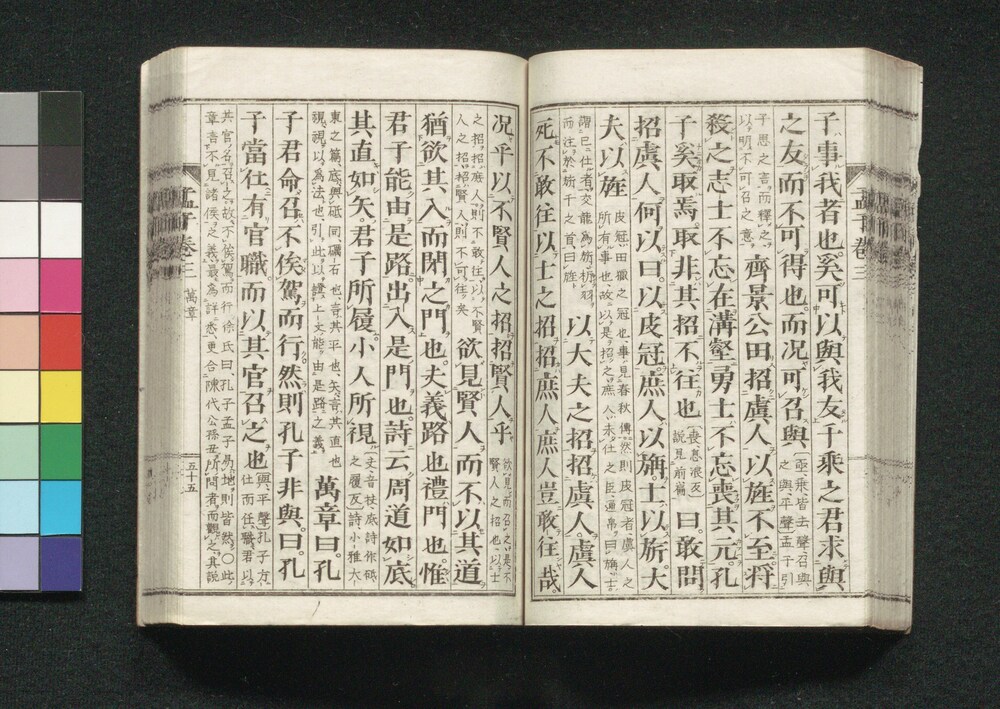 子事我者也奚可以與我友千乘之君求與
之友而不可得也而况可召與
亟乘皆去聲召與
之與平聲孟子引
子思之言而釋之
以明不可召之意
齊景公田招虞人以旌不至將
殺之志士不忘在溝壑勇士不忘喪其元孔
子奚取焉取非其招不往也
喪息浪反
說見前篇
曰敢問
招虞人何以曰以皮冠庶人以旃士以旂大
夫以旌
皮冠田獵之冠也事見春秋傳然則皮冠者虞人之
所有事也故以是招之庶人未仕之臣通帛曰旃士
謂已仕者交龍爲旂析羽
而注於旂干之首曰旌
以大夫之招招虞人虞人
死不敢往以士之招招庶人庶人豈敢往哉
况乎以不賢人之招招賢人乎
欲見而召之是不
賢人之招也以士
之招招庶人則不敢往以不賢
人之招招賢人則不可往矣
欲見賢人而不以其道
猶欲其入而閉之門也夫義路也禮門也惟
君子能由是路出入是門也詩云周道如底
其直如矢君子所履小人所視
夫音扶底詩作砥
之履反詩小雅大
東之篇底與砥同礪石也言其平也矢言其直也
視視以爲法也引此以證上文能由是路之義
萬章曰孔
子君命召不俟駕而行然則孔子非與曰孔
子當仕有官職而以其官召之也
與平聲孔子方
仕而任職君以
其官名召之故不俟駕而行徐氏曰孔子孟子易地則皆然○此
章言不見諸侯之義最爲詳悉更合陳代公孫丑所問者而觀之其說
孟子卷三
萬章
五十五
孟子卷三